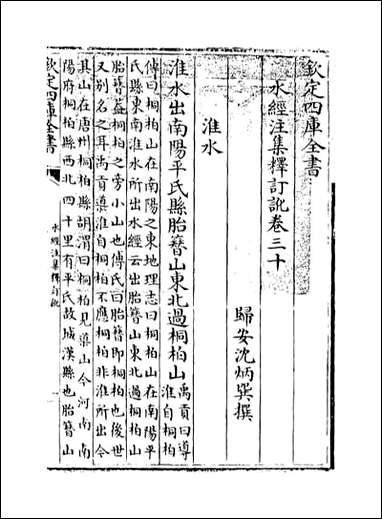 欽定四庫全書
水經注集釋訂訛卷三十
歸安沈炳巽撰
淮水
淮水出南陽平氏縣胎簪山東北過桐柏山
禹貢曰導
淮自桐柏
傳曰桐柏山在南陽之東地理志曰桐柏山在南陽平
氏縣東南淮水所出水經云出胎簪山東北過桐柏山
胎簪蓋桐柏之旁小山也傅氏曰胎簪即桐柏也後世
又別名之耳禹貢導淮自桐柏不應桐柏非淮所出今
其山在唐州桐柏縣胡渭曰桐柏見導山今河南南
陽府桐柏縣西北四十里有平氏故城漢縣也胎簪山
欽定四庫全書
水經注集釋訂訛
一